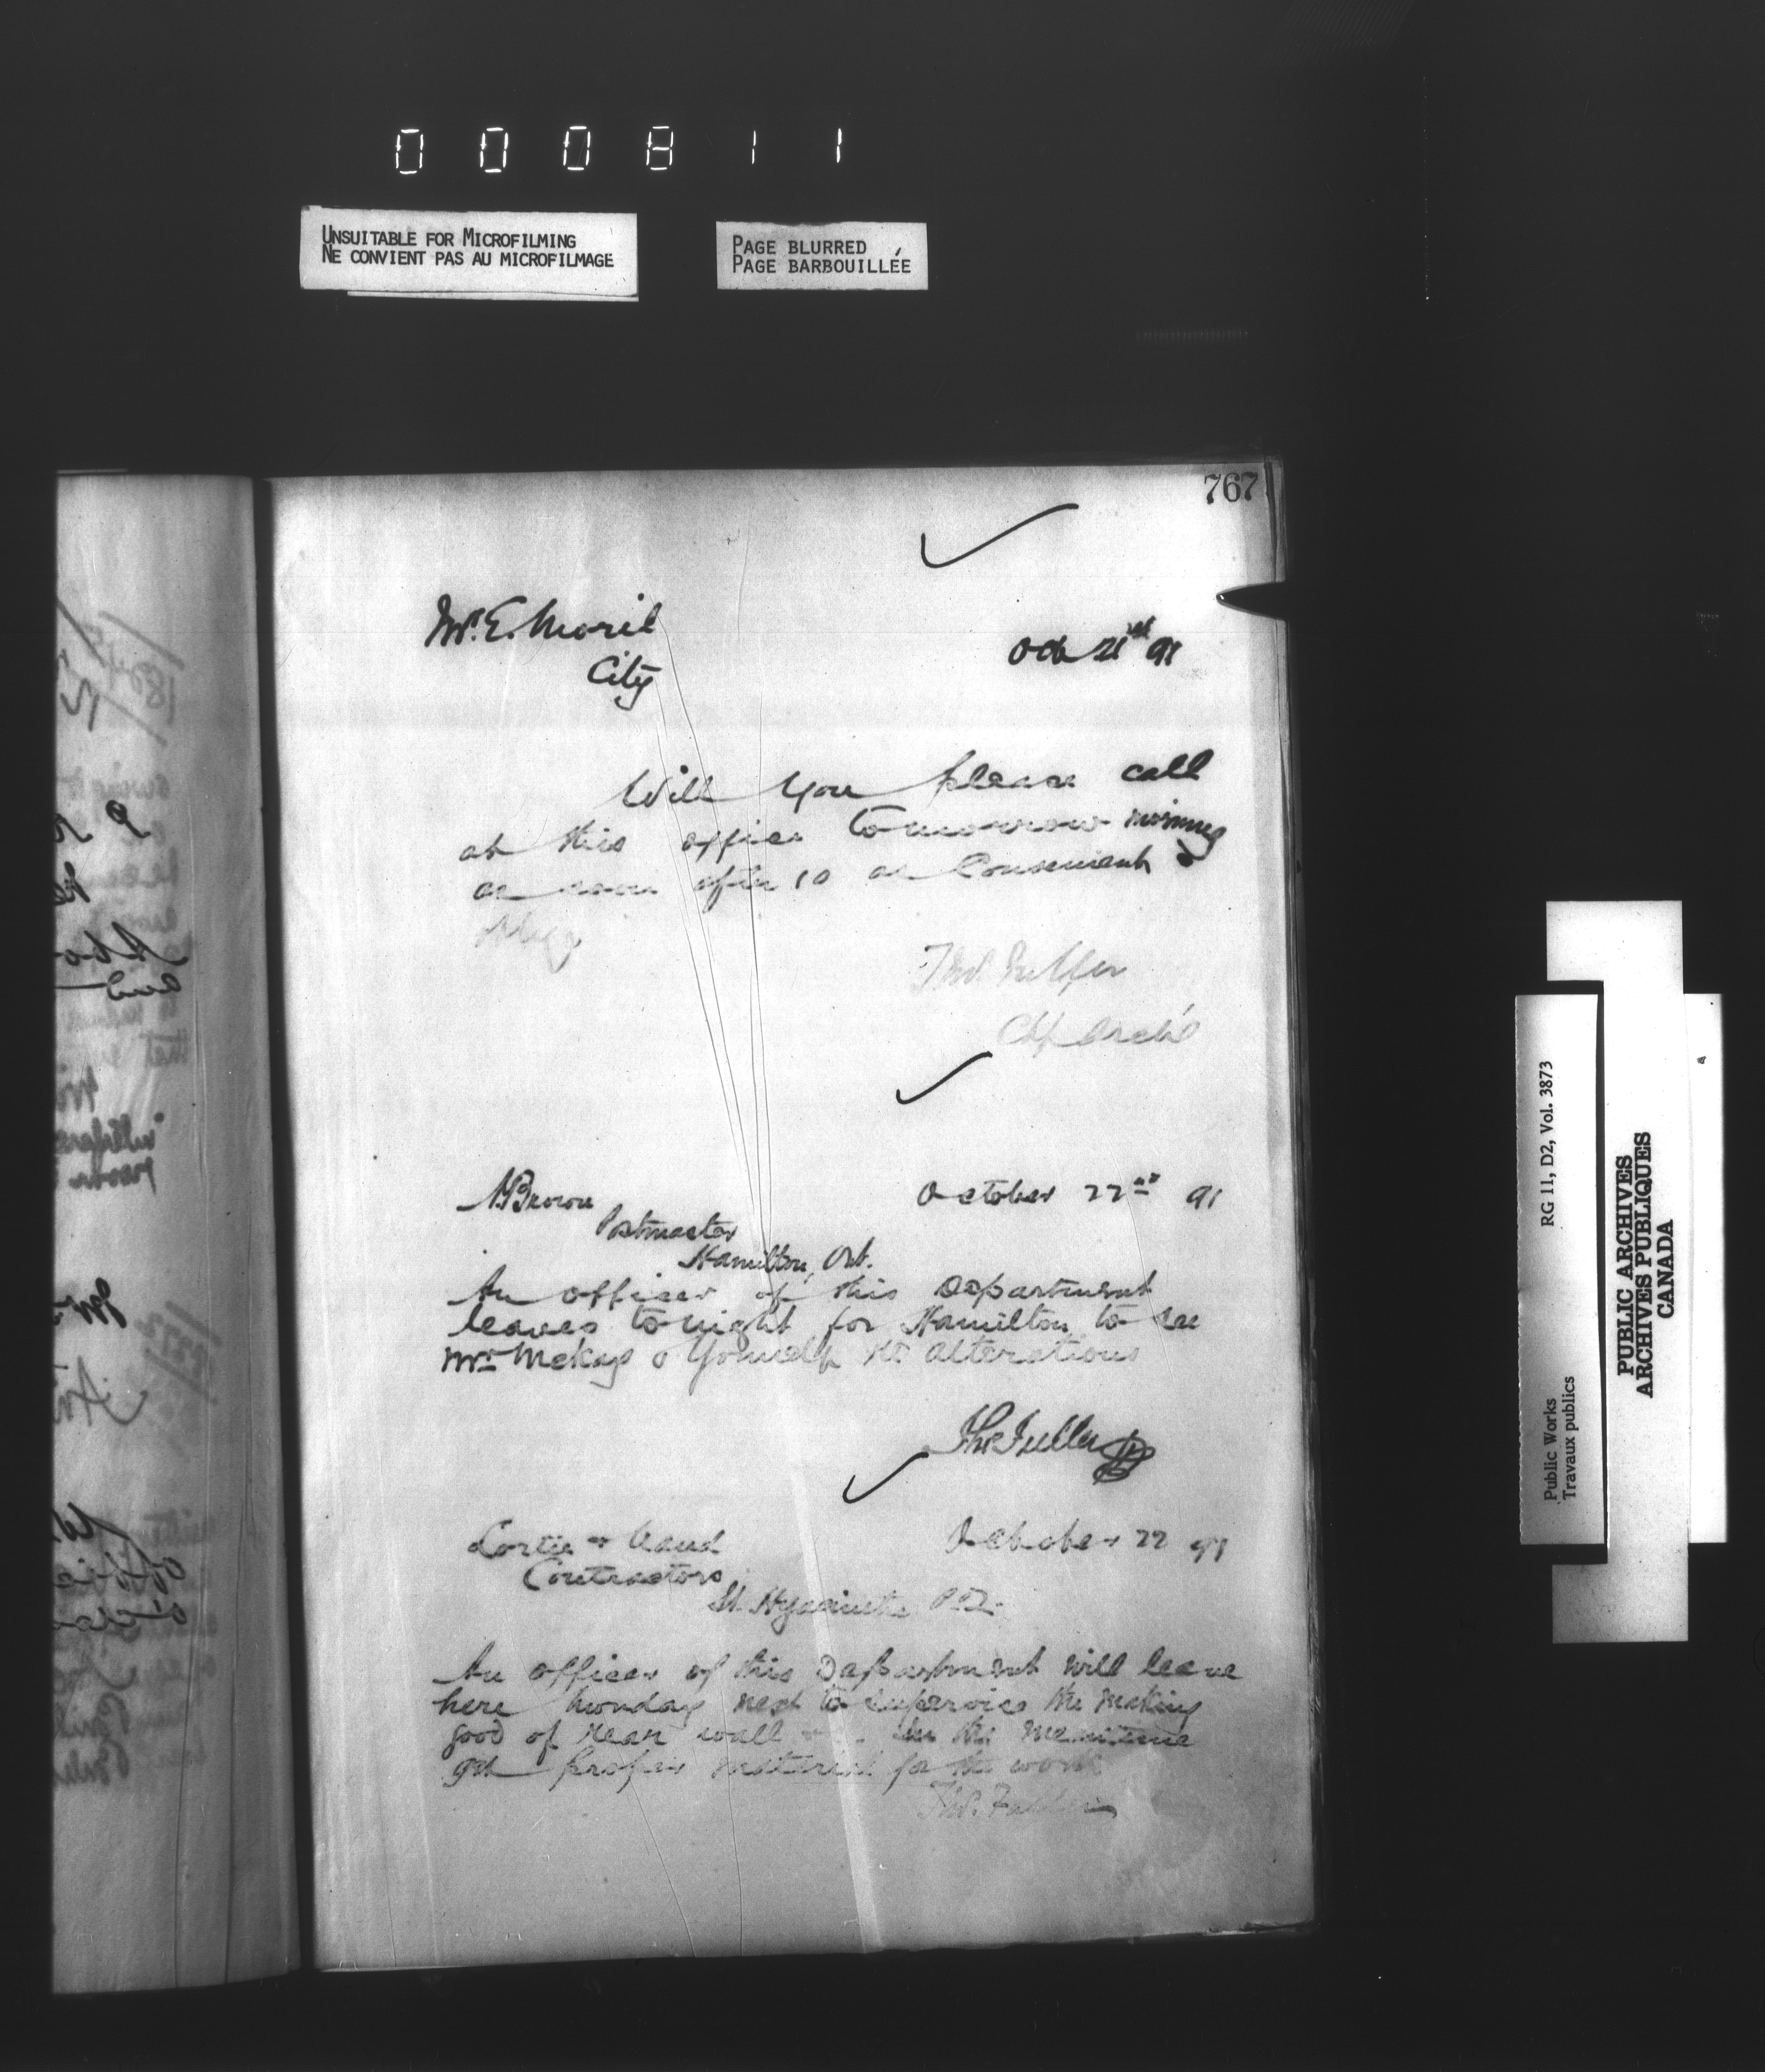 000811
UNSUITABLE FOR MICROFILMING
NE CONVIENT PAS AU MICROFILMAGE
PAGE BLURRED
PAGE BARBOUILLÉE
767
Mr. E. Morel
City
Oct 21st 91
Will you please call
at this office tomorrow morning
as soon after 10 as Convenient &
oblige
Thos. Fuller
Chf Archt
Brown
Postmaster
Hamilton, Ont.
October 22nd 91
An officer of this Department
leaves tonight for Hamilton to see
Mr McKay & Yourself re alterations
Thos. Fuller
October 22 91
Contractors
St. Hyacinthe P.Q.
An officer of this Department will leave
here Monday next to supervise the making
good of rear wall In the meantime
get proper material for the work
Thos. Fuller
RG 11, D2, Vol. 3873
Public Works
Travaux publics
PUBLIC ARCHIVES
ARCHIVES PUBLIQUES
CANADA